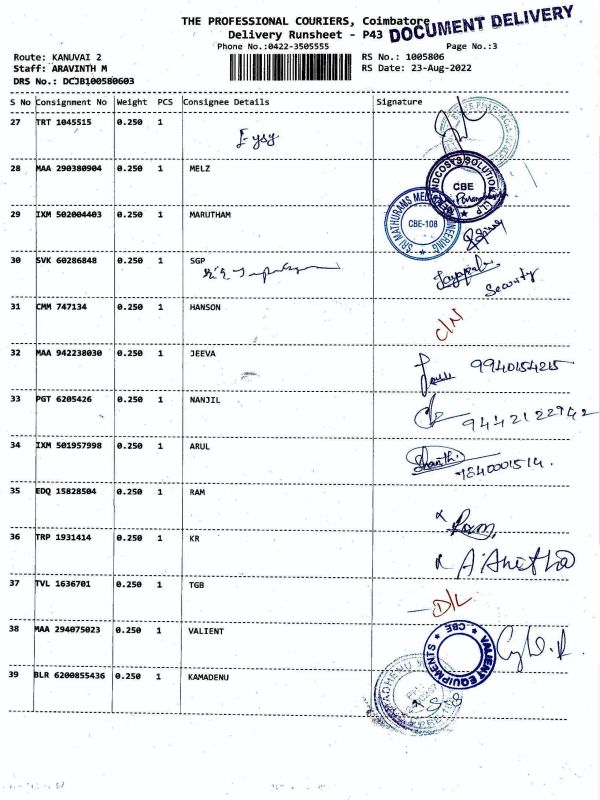 THE PROFESSIONAL COURIERS, Coimbatore
DOCUMENT DELIVERY
Delivery Runsheet - P43
Phone No.:0422-3505555
Page No.:3
Route: KANUVAI 2
RS No.: 1005806
Staff: ARAVINTH M
RS Date: 23-Aug-2022
DRS No.: DCJB100580603
S No Consignment No Weight PCS Consignee Details Signature
27 TRT 1045515 0.250 1
28 MAA 290380904 0.250 1 MELZ
CBE
29 IXM 502004403 0.250 1 MARUTHAM
SRI MATHURAMS ENGINEERING
CBE-108
30 SVK 60286848 0.250 1 SGP
Security
31 CMM 747134 0.250 1 HANSON
C/N
32 MAA 942238030 0.250 1 JEEVA
9940154215
33 PGT 6205426 0.250 1 NANJIL
9442122942
34 IXM 501957998 0.250 1 ARUL
Shanthi
9840001514.
35 EDQ 15828504 0.250 1 RAM
Ram,
36 TRP 1931414 0.250 1 KR
A. Anitha
37 TVL 1636701 0.250 1 TGB
D/L
38 MAA 294075023 0.250 1 VALIENT
VALIENT EQUIPMENTS
CBE
39 BLR 6200855436 0.250 1 KAMADENU